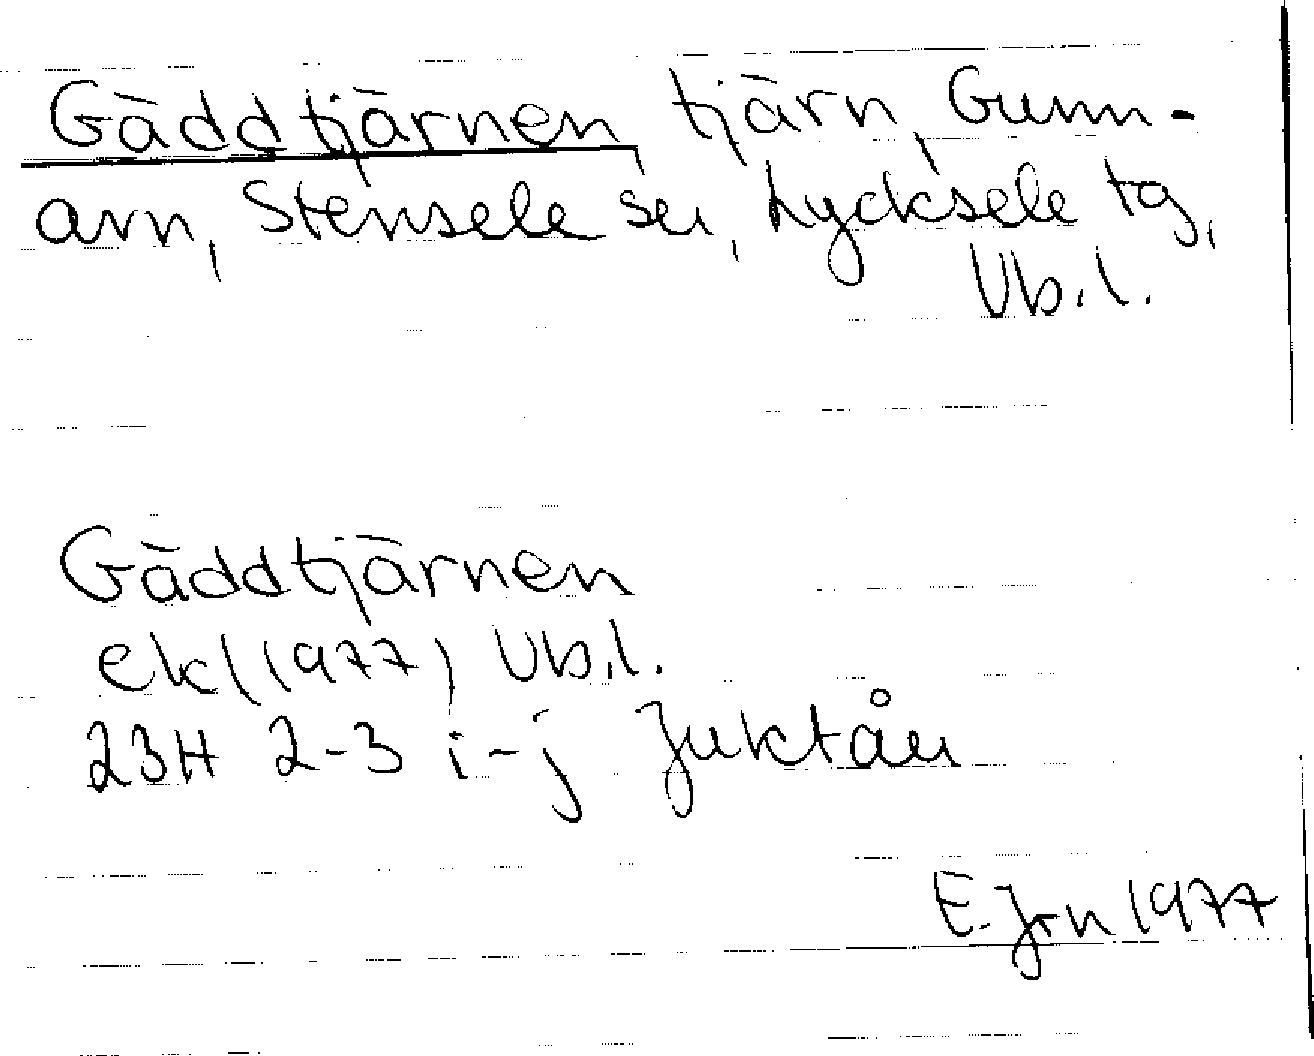 Gäddtjärnen tjärn, Gunn-
arn, Stensele sn, Lycksele tg,
Vb.l.
Gäddtjärnen
ek (1977) Vb.l.
23H 2-3 i-j Juktån
E. Jrn 1977